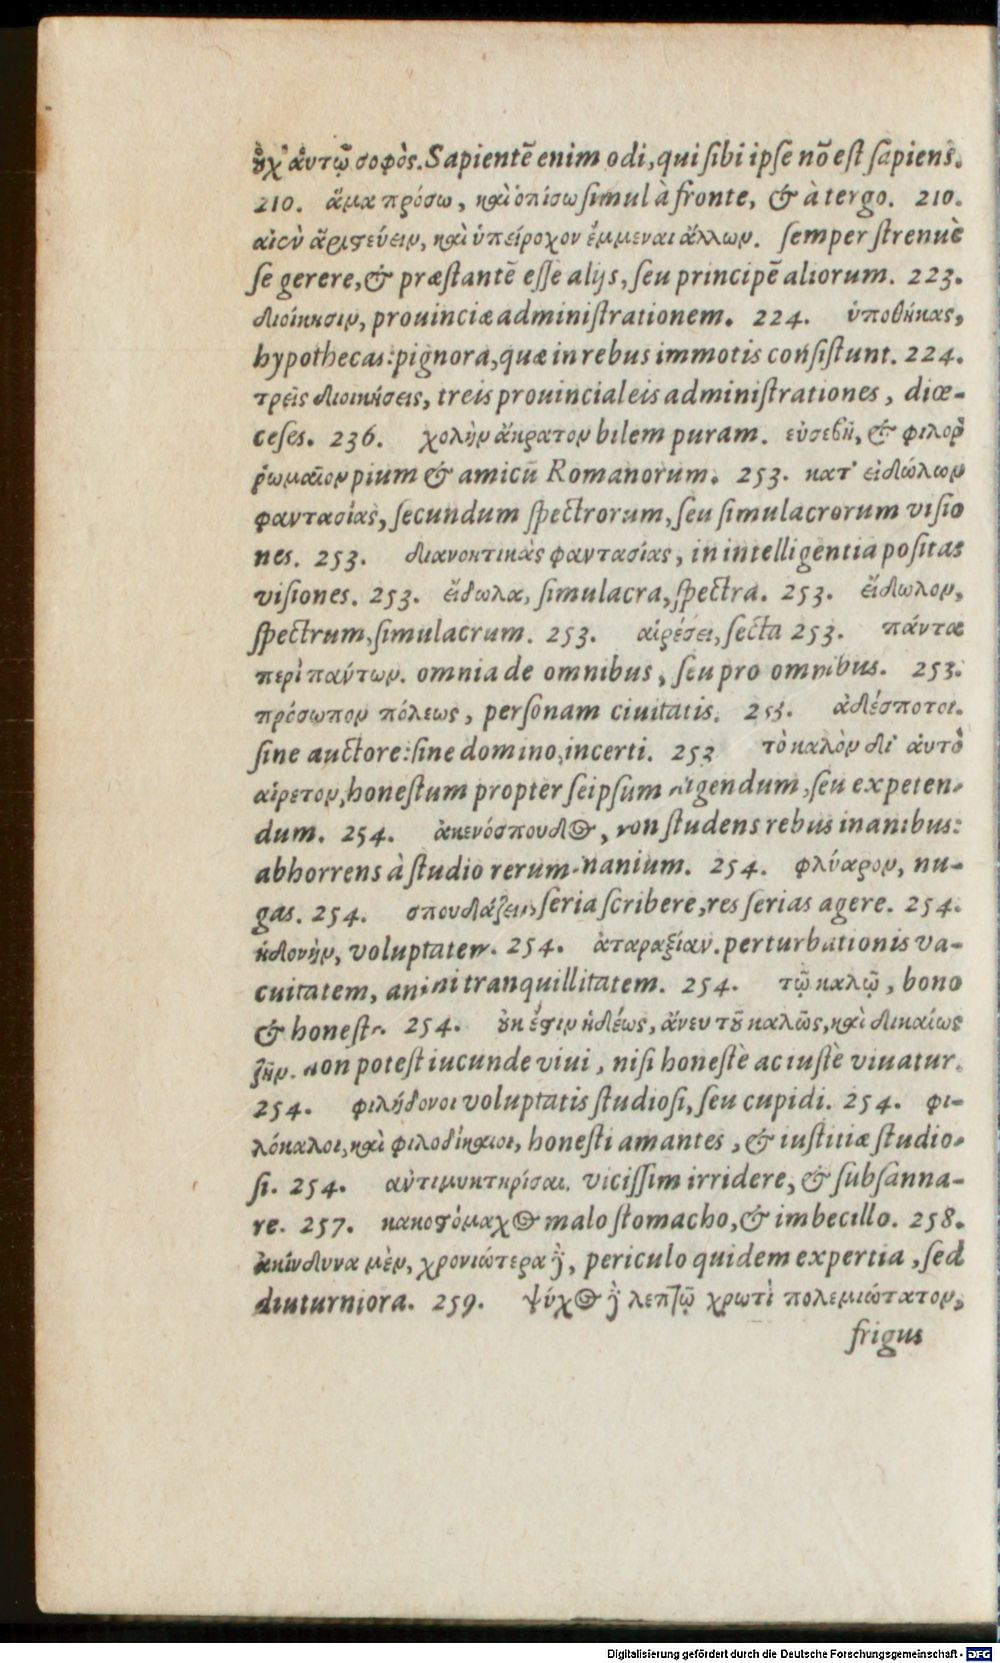 ȣ̓χ' ἁυτῷ σοφὸς. Sapientē enim odi, qui sibi ipse nō est sapiens.
210. ἅμα πρόσω, καὶ ὀπίσω simul à fronte, & à tergo. 210.
αἰεν ἀριστεύειν, καὶ ὑπείροχον ἔμμεναι ἄλλων. semper strenuè
se gerere, & præstantē esse alijs, seu principē aliorum. 223.
διοίκησιν, prouinciæ administrationem. 224. ὑποθήκας,
hypothecas: pignora, quæ in rebus immotis consistunt. 224.
τρεῖς διοικήσεις, treis prouincialeis administrationes, diœ-
ceses. 236. χολὴν ἄκρατον bilem puram. εὐσεβῆ, & φιλορ
ῥωμαῖον pium & amicū Romanorum. 253. κατ' εἰδώλων
φαντασίας, secundum spectrorum, seu simulacrorum visio
nes. 253. διανοητικὰς φαντασίας, in intelligentia positas
visiones. 253. εἴδωλα, simulacra, spectra. 253. εἴδωλον,
spectrum, simulacrum. 253. αἱρέσει, secta 253. πάντα
περὶ παντων. omnia de omnibus, seu pro omnibus. 253.
πρόσωπον πόλεως, personam ciuitatis. 253. ἀδέσποτοι.
sine auctore: sine domino, incerti. 253 τὸ καλὸν δἰ ἁυτὸ
αἱρετον, honestum propter seipsum eligendum, seu expeten-
dum. 254. ἀκενόσπουδος, non studens rebus inanibus:
abhorrens à studio rerum inanium. 254. φλύαρον, nu-
gas. 254. σπουδάζειν seria scribere, res serias agere. 254.
ἡδονὴν, voluptatem. 254. ἀταραξίαν. perturbationis va-
cuitatem, animi tranquillitatem. 254. τῷ καλῷ, bono
& honesto. 254. ȣ̓κ ἔστιν ἡδέως, ἄνευ τȣ͂ καλῶς, καὶ δικαίως
ζῆν. non potest iucunde viui, nisi honestè ac iustè viuatur.
254. φιλήδονοι voluptatis studiosi, seu cupidi. 254. φι-
λόκαλοι, καὶ φιλοδίκαιοι, honesti amantes, & iustitiæ studio-
si. 254. ἀντιμυκτηρίσαι. vicissim irridere, & subsanna-
re. 257. κακοστόμαχος malo stomacho, & imbecillo. 258.
ἀκίνδυνα μὲν, χρονιώτερα δὲ, periculo quidem expertia, sed
diuturniora. 259. ψύχος δὲ λεπτῷ χρωτὶ πολεμιώτατον,
frigus
Digitalisierung gefördert durch die Deutsche Forschungsgemeinschaft - DFG